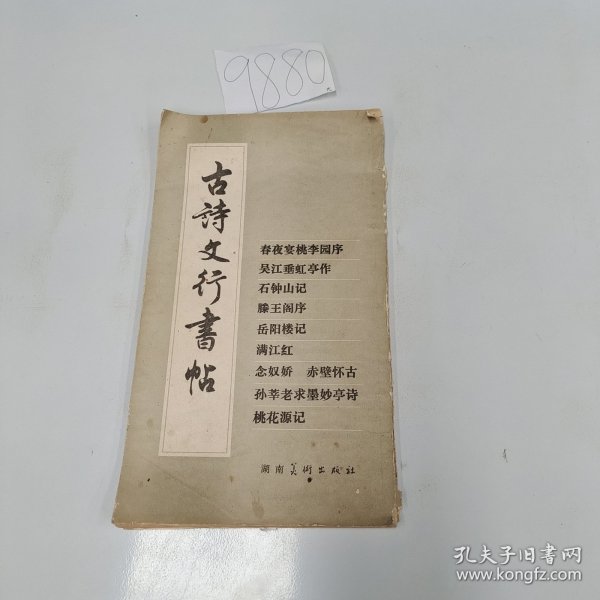 9880
古詩文行書帖
春夜宴桃李园序
吴江垂虹亭作
石钟山记
滕王阁序
岳阳楼记
满江红
念奴娇 赤壁怀古
孙莘老求墨妙亭诗
桃花源记
湖南美術出版社
孔夫子旧书网
www.kongfz.com